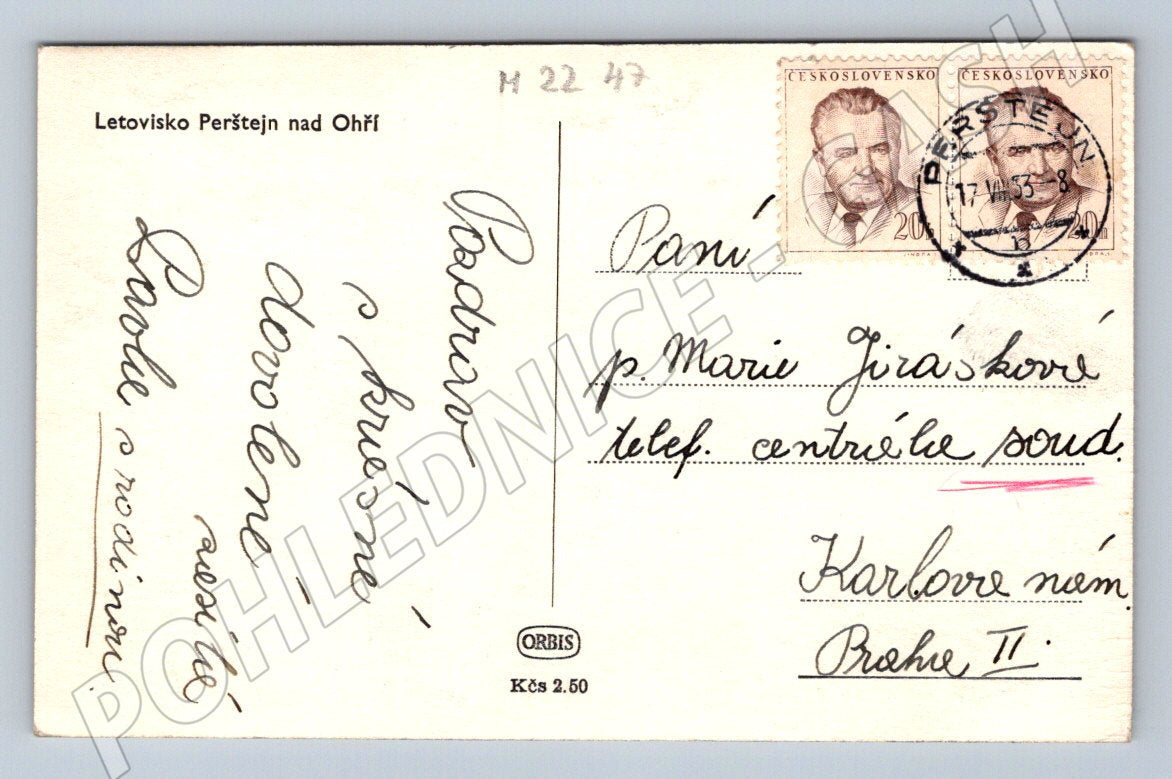 M 22 47
Letovisko Perštejn nad Ohří
ČESKOSLOVENSKO
20h
JINDRA
ČESKOSLOVENSKO
20h
JINDRA
PERŠTEJN
17 VIII 53-8
b
Pozdrav
s krásné
dovolené
zasílá
s rodinou.
Paní
p. Marie Jirásková
telef. centrála soud.
Karlovo nám.
Praha II.
ORBIS
Kčs 2.50
POHLEDNICE - CASH